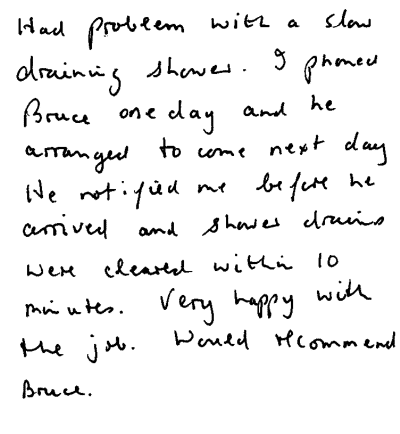 Had problem with a slow
draining shower. I phoned
Bruce one day and he
arranged to come next day
He notified me before he
arrived and shower drains
were cleared within 10
minutes. Very happy with
the job. Would recommend
Bruce.